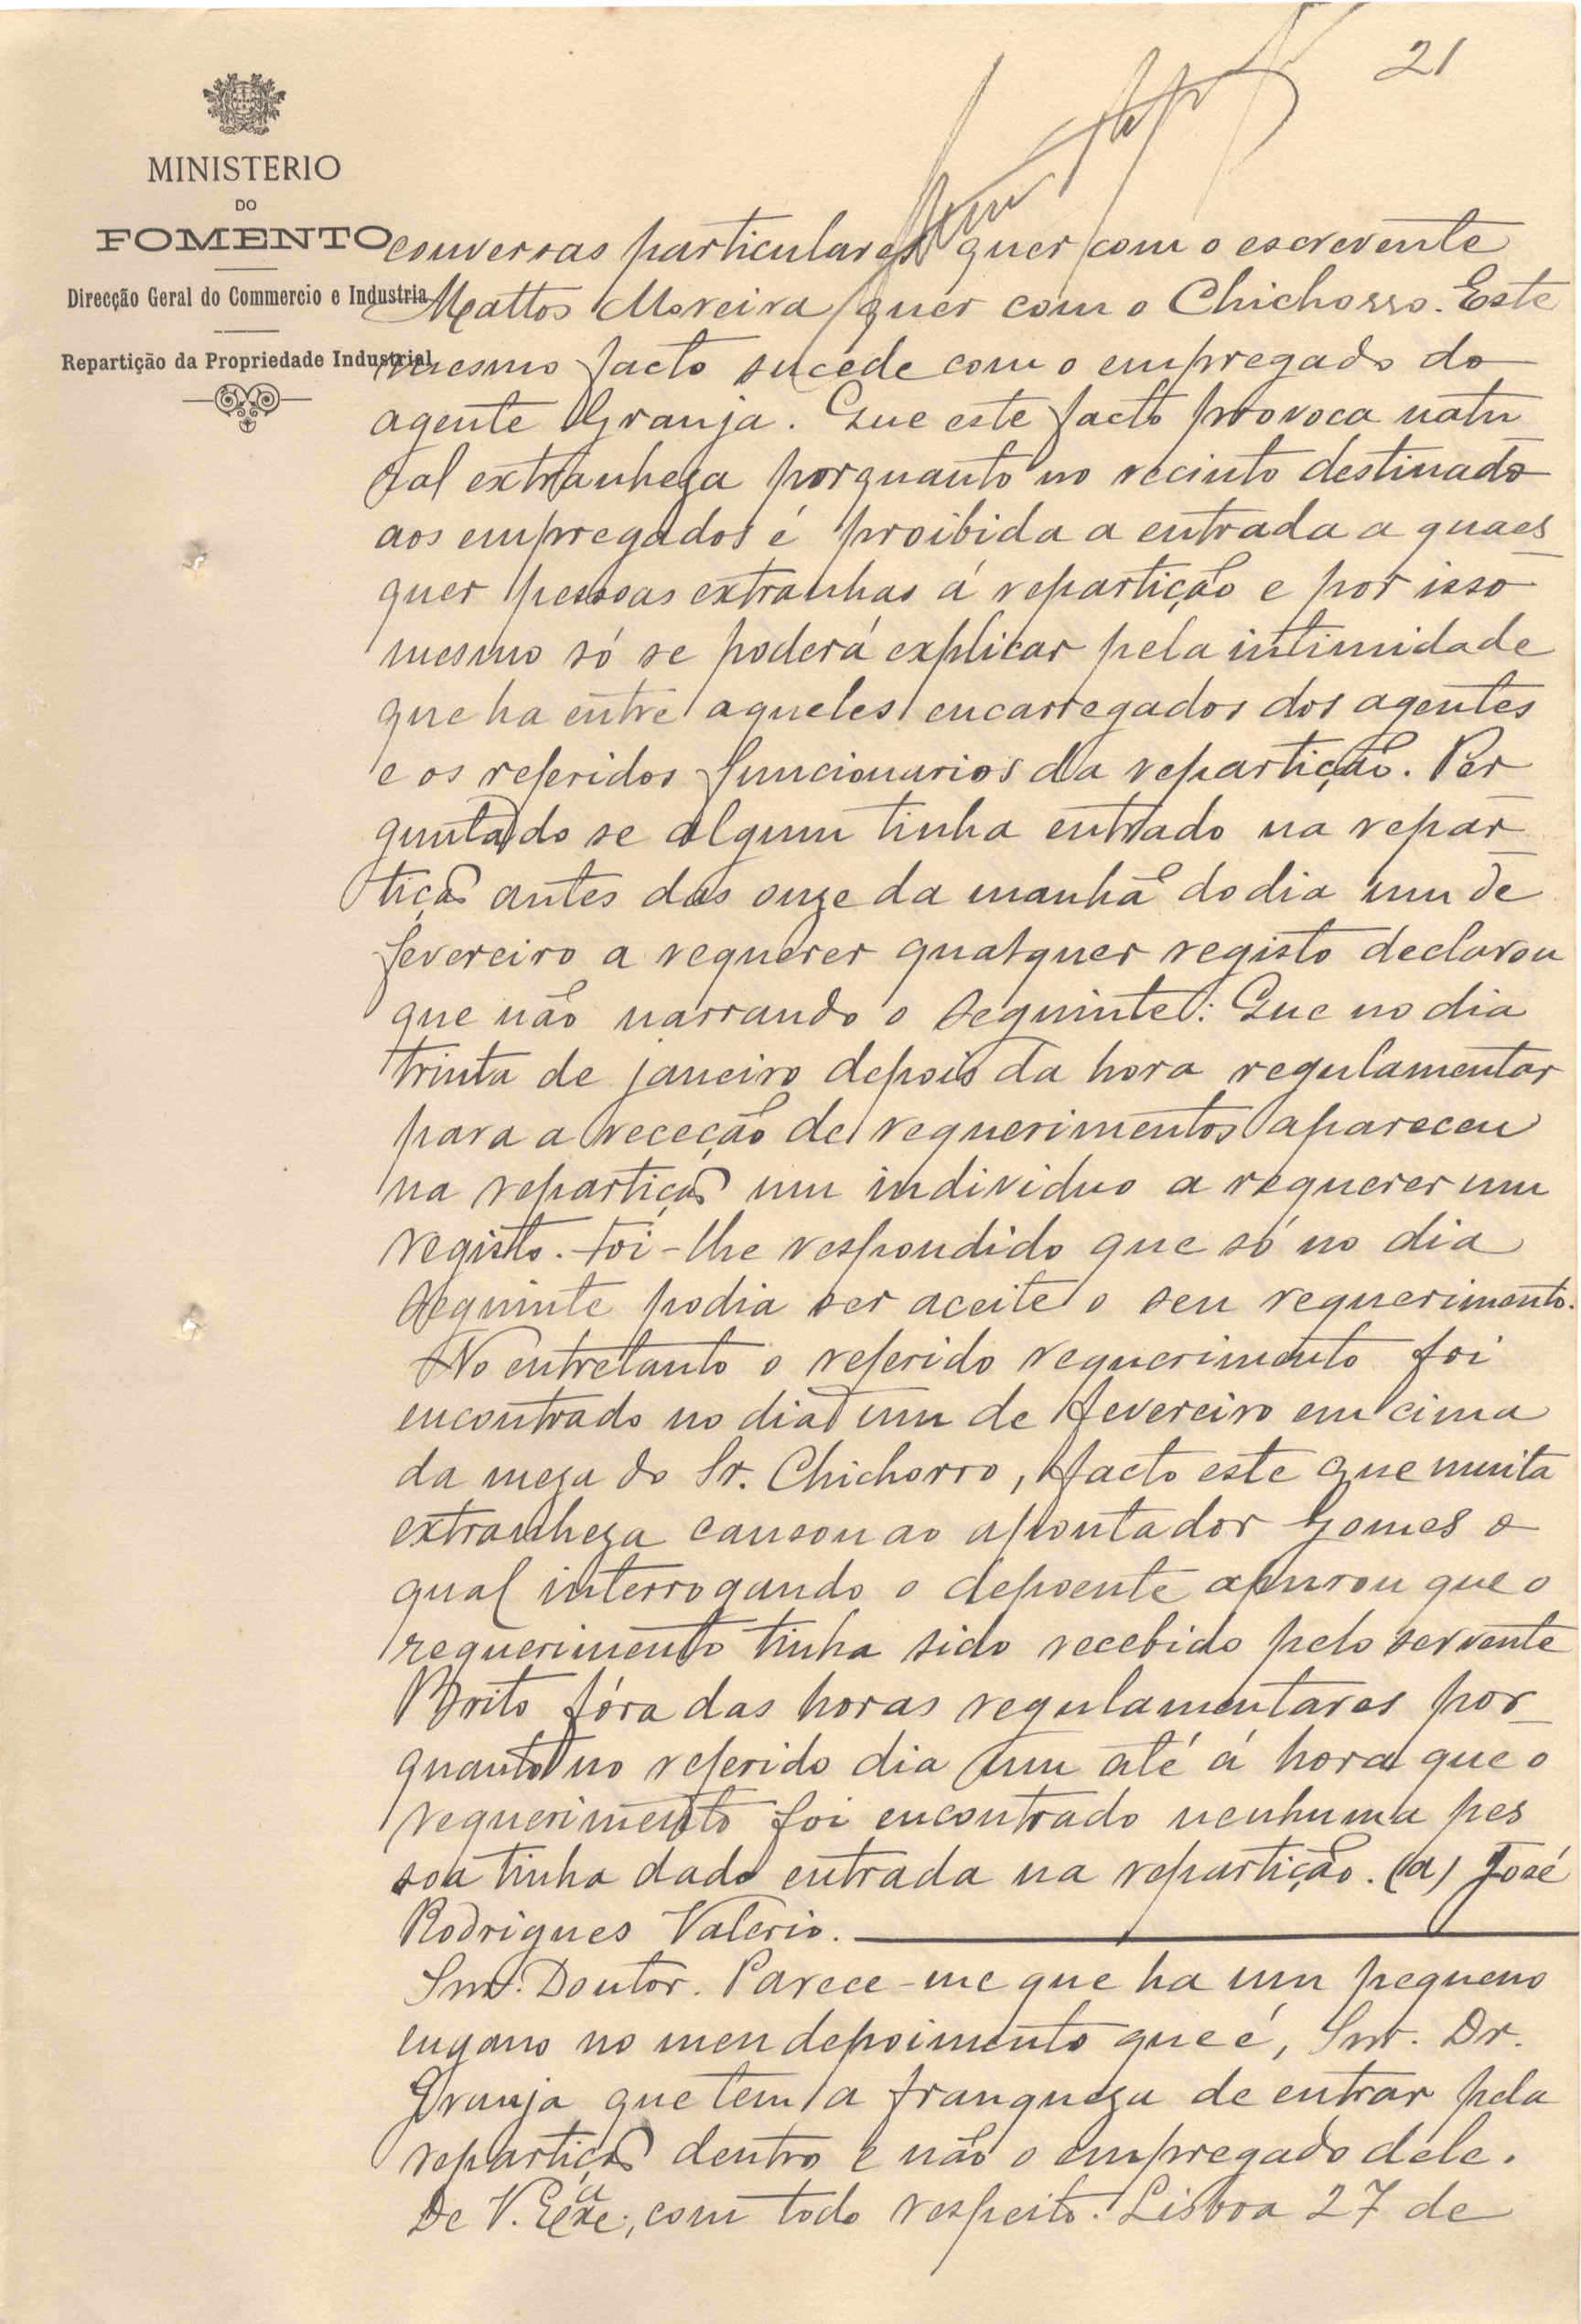 21
MINISTERIO
DO
FOMENTO
Direcção Geral do Commercio e Industria
Repartição da Propriedade Industrial
conversas particulares quer com o escrevente
Mattos Moreira quer com o Chichorro. Este
mesmo facto sucede com o empregado do
agente Granja. Que este facto provoca natu
ral extranheza porquanto no recinto destinado
aos empregados é proibida a entrada a quaes
quer pessoas extranhas á repartição e por isso
mesmo só se poderá explicar pela intimidade
que ha entre aqueles encarregados dos agentes
e os referidos funcionarios da repartição. Per
guntado se algum tinha entrado na repar
tição antes das onze da manhã do dia um de
fevereiro a requerer qualquer registo declarou
que não narrando o seguinte: Que no dia
trinta de janeiro depois da hora regulamentar
para a receção de requerimentos apareceu
na repartição um individuo a requerer um
registo. Foi-lhe respondido que só no dia
seguinte podia ser aceite o seu requerimento.
No entretanto o referido requerimento foi
encontrado no dia um de fevereiro em cima
da meza do Sr. Chichorro, facto este que muita
extranheza causou ao apontador Gomes o
qual interrogando o depoente apurou que o
requerimento tinha sido recebido pelo servente
Brito fóra das horas regulamentares por
quanto no referido dia um até á hora que o
requerimento foi encontrado nenhuma pes
soa tinha dado entrada na repartição. (a) José
Rodrigues Valerio.
Snr. Doutor. Parece-me que ha um pequeno
engano no meu depoimento que é, Snr. Dr.
Granja que tem a franqueza de entrar pela
repartição dentro e não o empregado dele.
De V. Exa., com todo respeito. Lisboa 27 de